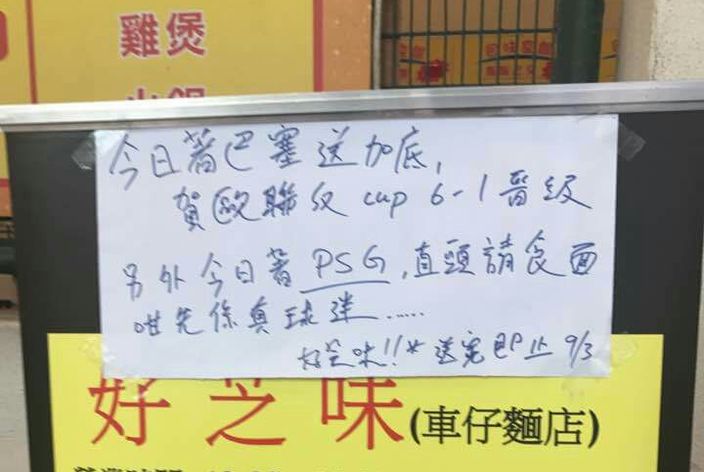 雞煲
今日著巴塞送加底,
賀歐聯反 cup 6-1 晉級
另外今日著 PSG, 直頭請食面
咁先係真球迷......
好芝味!! *送完即止 9/3
好芝味(車仔麵店)